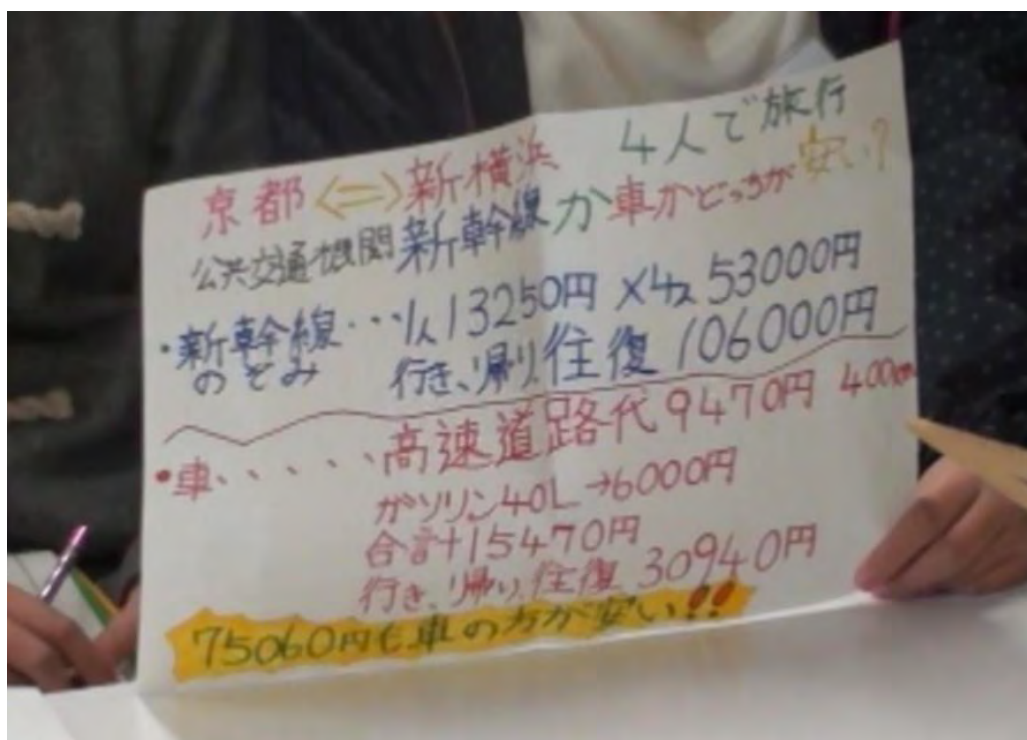 京都⇔新横浜 4人で旅行
公共交通機関新幹線か車かどっちが安い?
・新幹線・・・1人13250円×4人53000円
のぞみ 行き、帰り、往復106000円
・車、、、、、高速道路代9470円 400km
ガソリン40L→6000円
合計15470円
行き、帰り、往復 30940円
75060円も車の方が安い!!